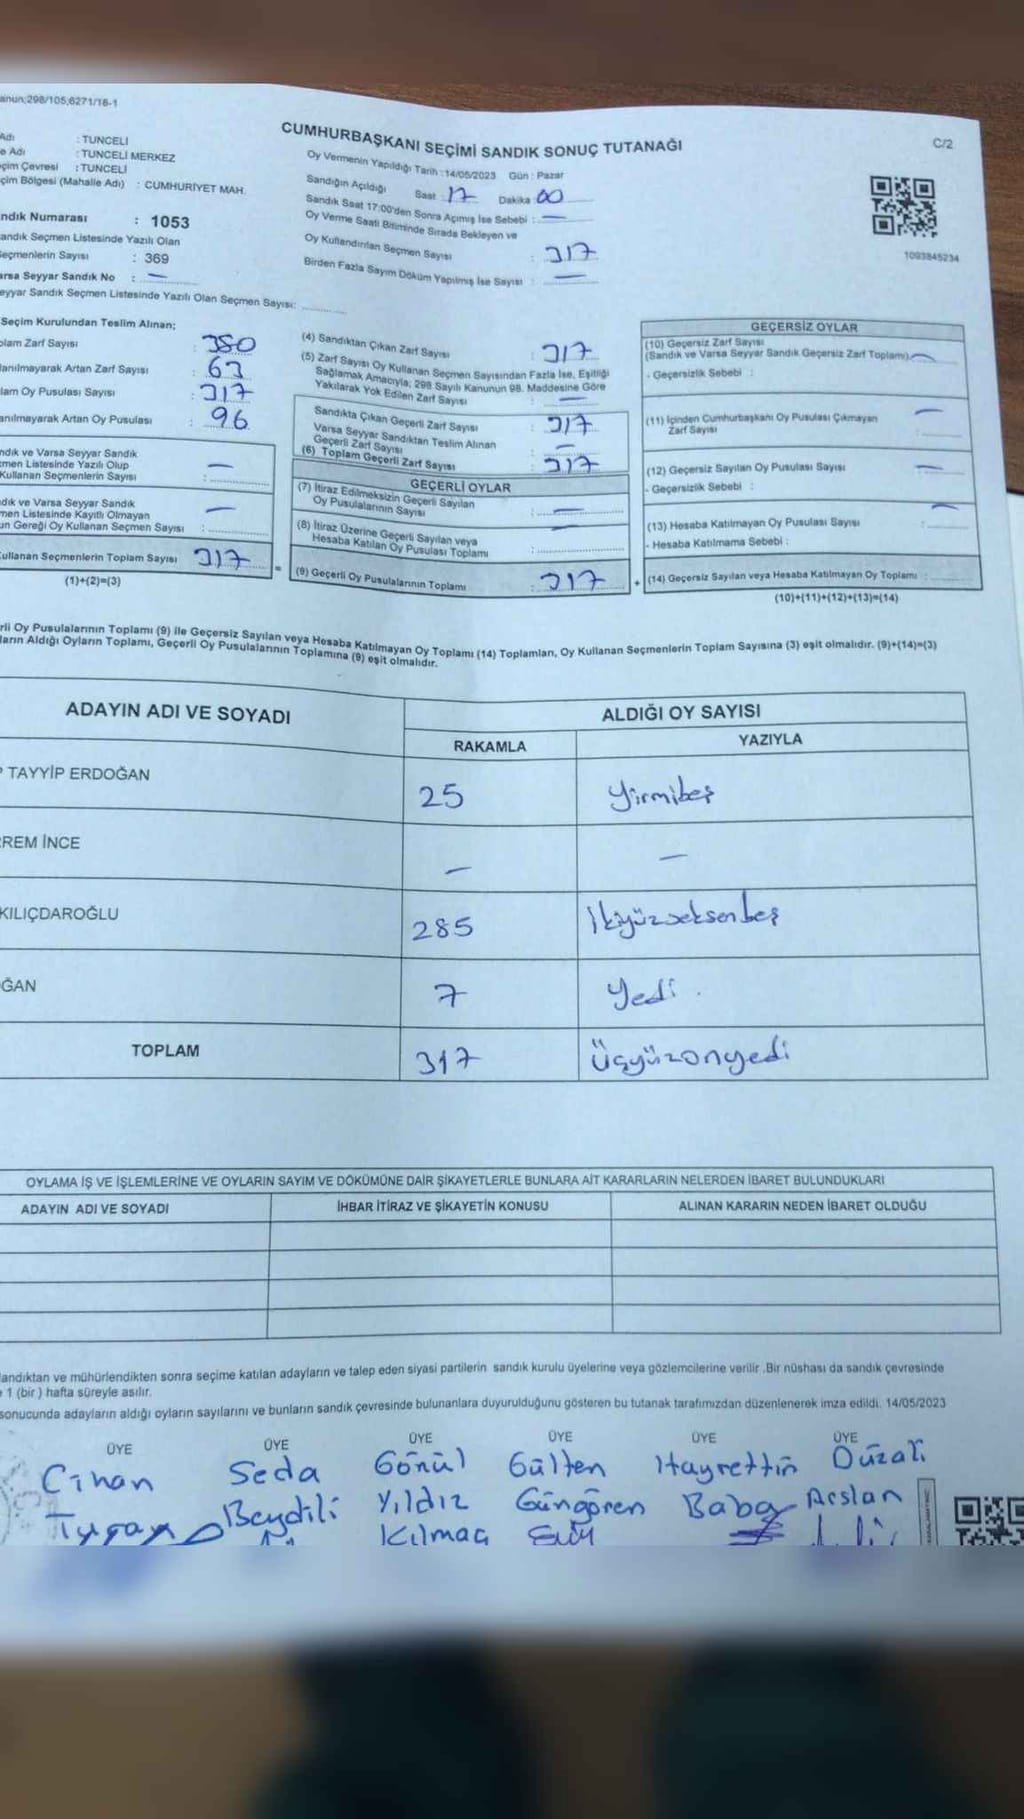 anun;298/105;6271/16-1
Adı : TUNCELİ
e Adı : TUNCELİ MERKEZ
çim Çevresi : TUNCELİ
çim Bölgesi (Mahalle Adı) : CUMHURİYET MAH.
CUMHURBAŞKANI SEÇİMİ SANDIK SONUÇ TUTANAĞI
C/2
Oy Vermenin Yapıldığı Tarih : 14/05/2023 Gün : Pazar
Sandığın Açıldığı Saat : 17 Dakika 00
Sandık Saat 17:00'den Sonra Açımış İse Sebebi : —
Oy Verme Saati Bitiminde Sırada Bekleyen ve
Oy Kullandırılan Seçmen Sayısı : 317
Birden Fazla Sayım Döküm Yapılmış İse Sayısı : —
1093845234
ndık Numarası : 1053
andık Seçmen Listesinde Yazılı Olan
Seçmenlerin Sayısı : 369
arsa Seyyar Sandık No : —
eyyar Sandık Seçmen Listesinde Yazılı Olan Seçmen Sayısı:
Seçim Kurulundan Teslim Alınan;
plam Zarf Sayısı : 380
lanılmayarak Artan Zarf Sayısı : 63
lam Oy Pusulası Sayısı : 317
anılmayarak Artan Oy Pusulası : 96
ndık ve Varsa Seyyar Sandık
men Listesinde Yazılı Olup
Kullanan Seçmenlerin Sayısı : —
dık ve Varsa Seyyar Sandık
men Listesinde Kayıtlı Olmayan
un Gereği Oy Kullanan Seçmen Sayısı : —
ullanan Seçmenlerin Toplam Sayısı 317
(1)+(2)=(3)
(4) Sandıktan Çıkan Zarf Sayısı : 317
(5) Zarf Sayısı Oy Kullanan Seçmen Sayısından Fazla İse, Eşitliği
Sağlamak Amacıyla, 298 Sayılı Kanunun 98. Maddesine Göre
Yakılarak Yok Edilen Zarf Sayısı : —
Sandıkta Çıkan Geçerli Zarf Sayısı : 317
Varsa Seyyar Sandıktan Teslim Alınan
Geçerli Zarf Sayısı : —
(6) Toplam Geçerli Zarf Sayısı : 317
GEÇERLİ OYLAR
(7) İtiraz Edilmeksizin Geçerli Sayılan
Oy Pusulalarının Sayısı : —
(8) İtiraz Üzerine Geçerli Sayılan veya
Hesaba Katılan Oy Pusulası Toplamı : —
= (9) Geçerli Oy Pusulalarının Toplamı : 317
GEÇERSİZ OYLAR
(10) Geçersiz Zarf Sayısı
(Sandık ve Varsa Seyyar Sandık Geçersiz Zarf Toplamı) —
- Geçersizlik Sebebi :
(11) İçinden Cumhurbaşkanı Oy Pusulası Çıkmayan
Zarf Sayısı : —
(12) Geçersiz Sayılan Oy Pusulası Sayısı : —
- Geçersizlik Sebebi :
(13) Hesaba Katılmayan Oy Pusulası Sayısı : —
- Hesaba Katılmama Sebebi :
+ (14) Geçersiz Sayılan veya Hesaba Katılmayan Oy Toplamı :
(10)+(11)+(12)+(13)=(14)
rli Oy Pusulalarının Toplamı (9) ile Geçersiz Sayılan veya Hesaba Katılmayan Oy Toplamı (14) Toplamları, Oy Kullanan Seçmenlerin Toplam Sayısına (3) eşit olmalıdır. (9)+(14)=(3)
ların Aldığı Oyların Toplamı, Geçerli Oy Pusulalarının Toplamına (9) eşit olmalıdır.
ADAYIN ADI VE SOYADI
ALDIĞI OY SAYISI
RAKAMLA YAZIYLA
TAYYİP ERDOĞAN 25 Yirmibeş
REM İNCE — —
KILIÇDAROĞLU 285 İkiyüzseksenbeş
ĞAN 7 Yedi .
TOPLAM 317 Üçyüzonyedi
OYLAMA İŞ VE İŞLEMLERİNE VE OYLARIN SAYIM VE DÖKÜMÜNE DAİR ŞİKAYETLERLE BUNLARA AİT KARARLARIN NELERDEN İBARET BULUNDUKLARI
ADAYIN ADI VE SOYADI İHBAR İTİRAZ VE ŞİKAYETİN KONUSU ALINAN KARARIN NEDEN İBARET OLDUĞU
landıktan ve mühürlendikten sonra seçime katılan adayların ve talep eden siyasi partilerin sandık kurulu üyelerine veya gözlemcilerine verilir .Bir nüshası da sandık çevresinde
1 (bir ) hafta süreyle asılır.
sonucunda adayların aldığı oyların sayılarını ve bunların sandık çevresinde bulunanlara duyurulduğunu gösteren bu tutanak tarafımızdan düzenlenerek imza edildi. 14/05/2023
ÜYE ÜYE ÜYE ÜYE ÜYE ÜYE
Cihan Seda Gönül Gülten Hayrettin Düzali
Beydili Yıldız Güngören Baba Arslan
Kılmaç